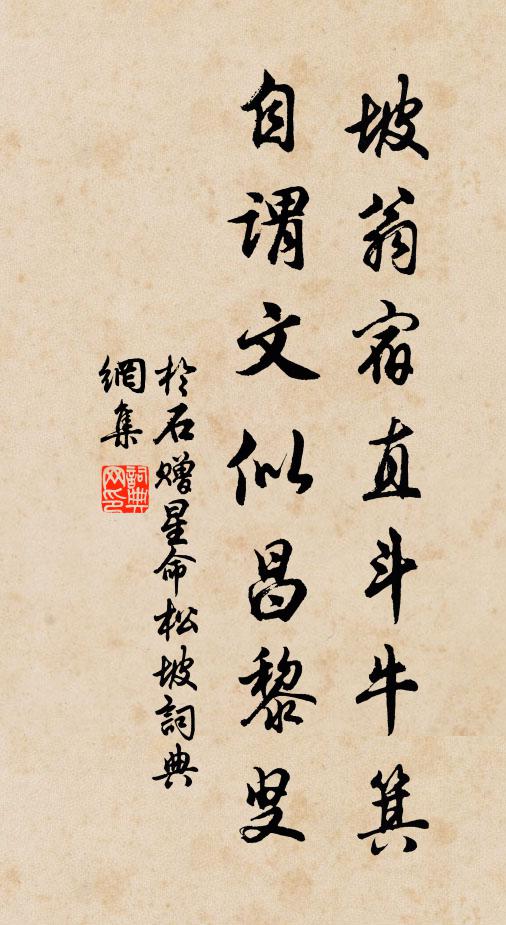 坡翁宿直斗牛箕
自谓文似昌黎叟
於石赠星命松坡詞典
網集
詞典
网印